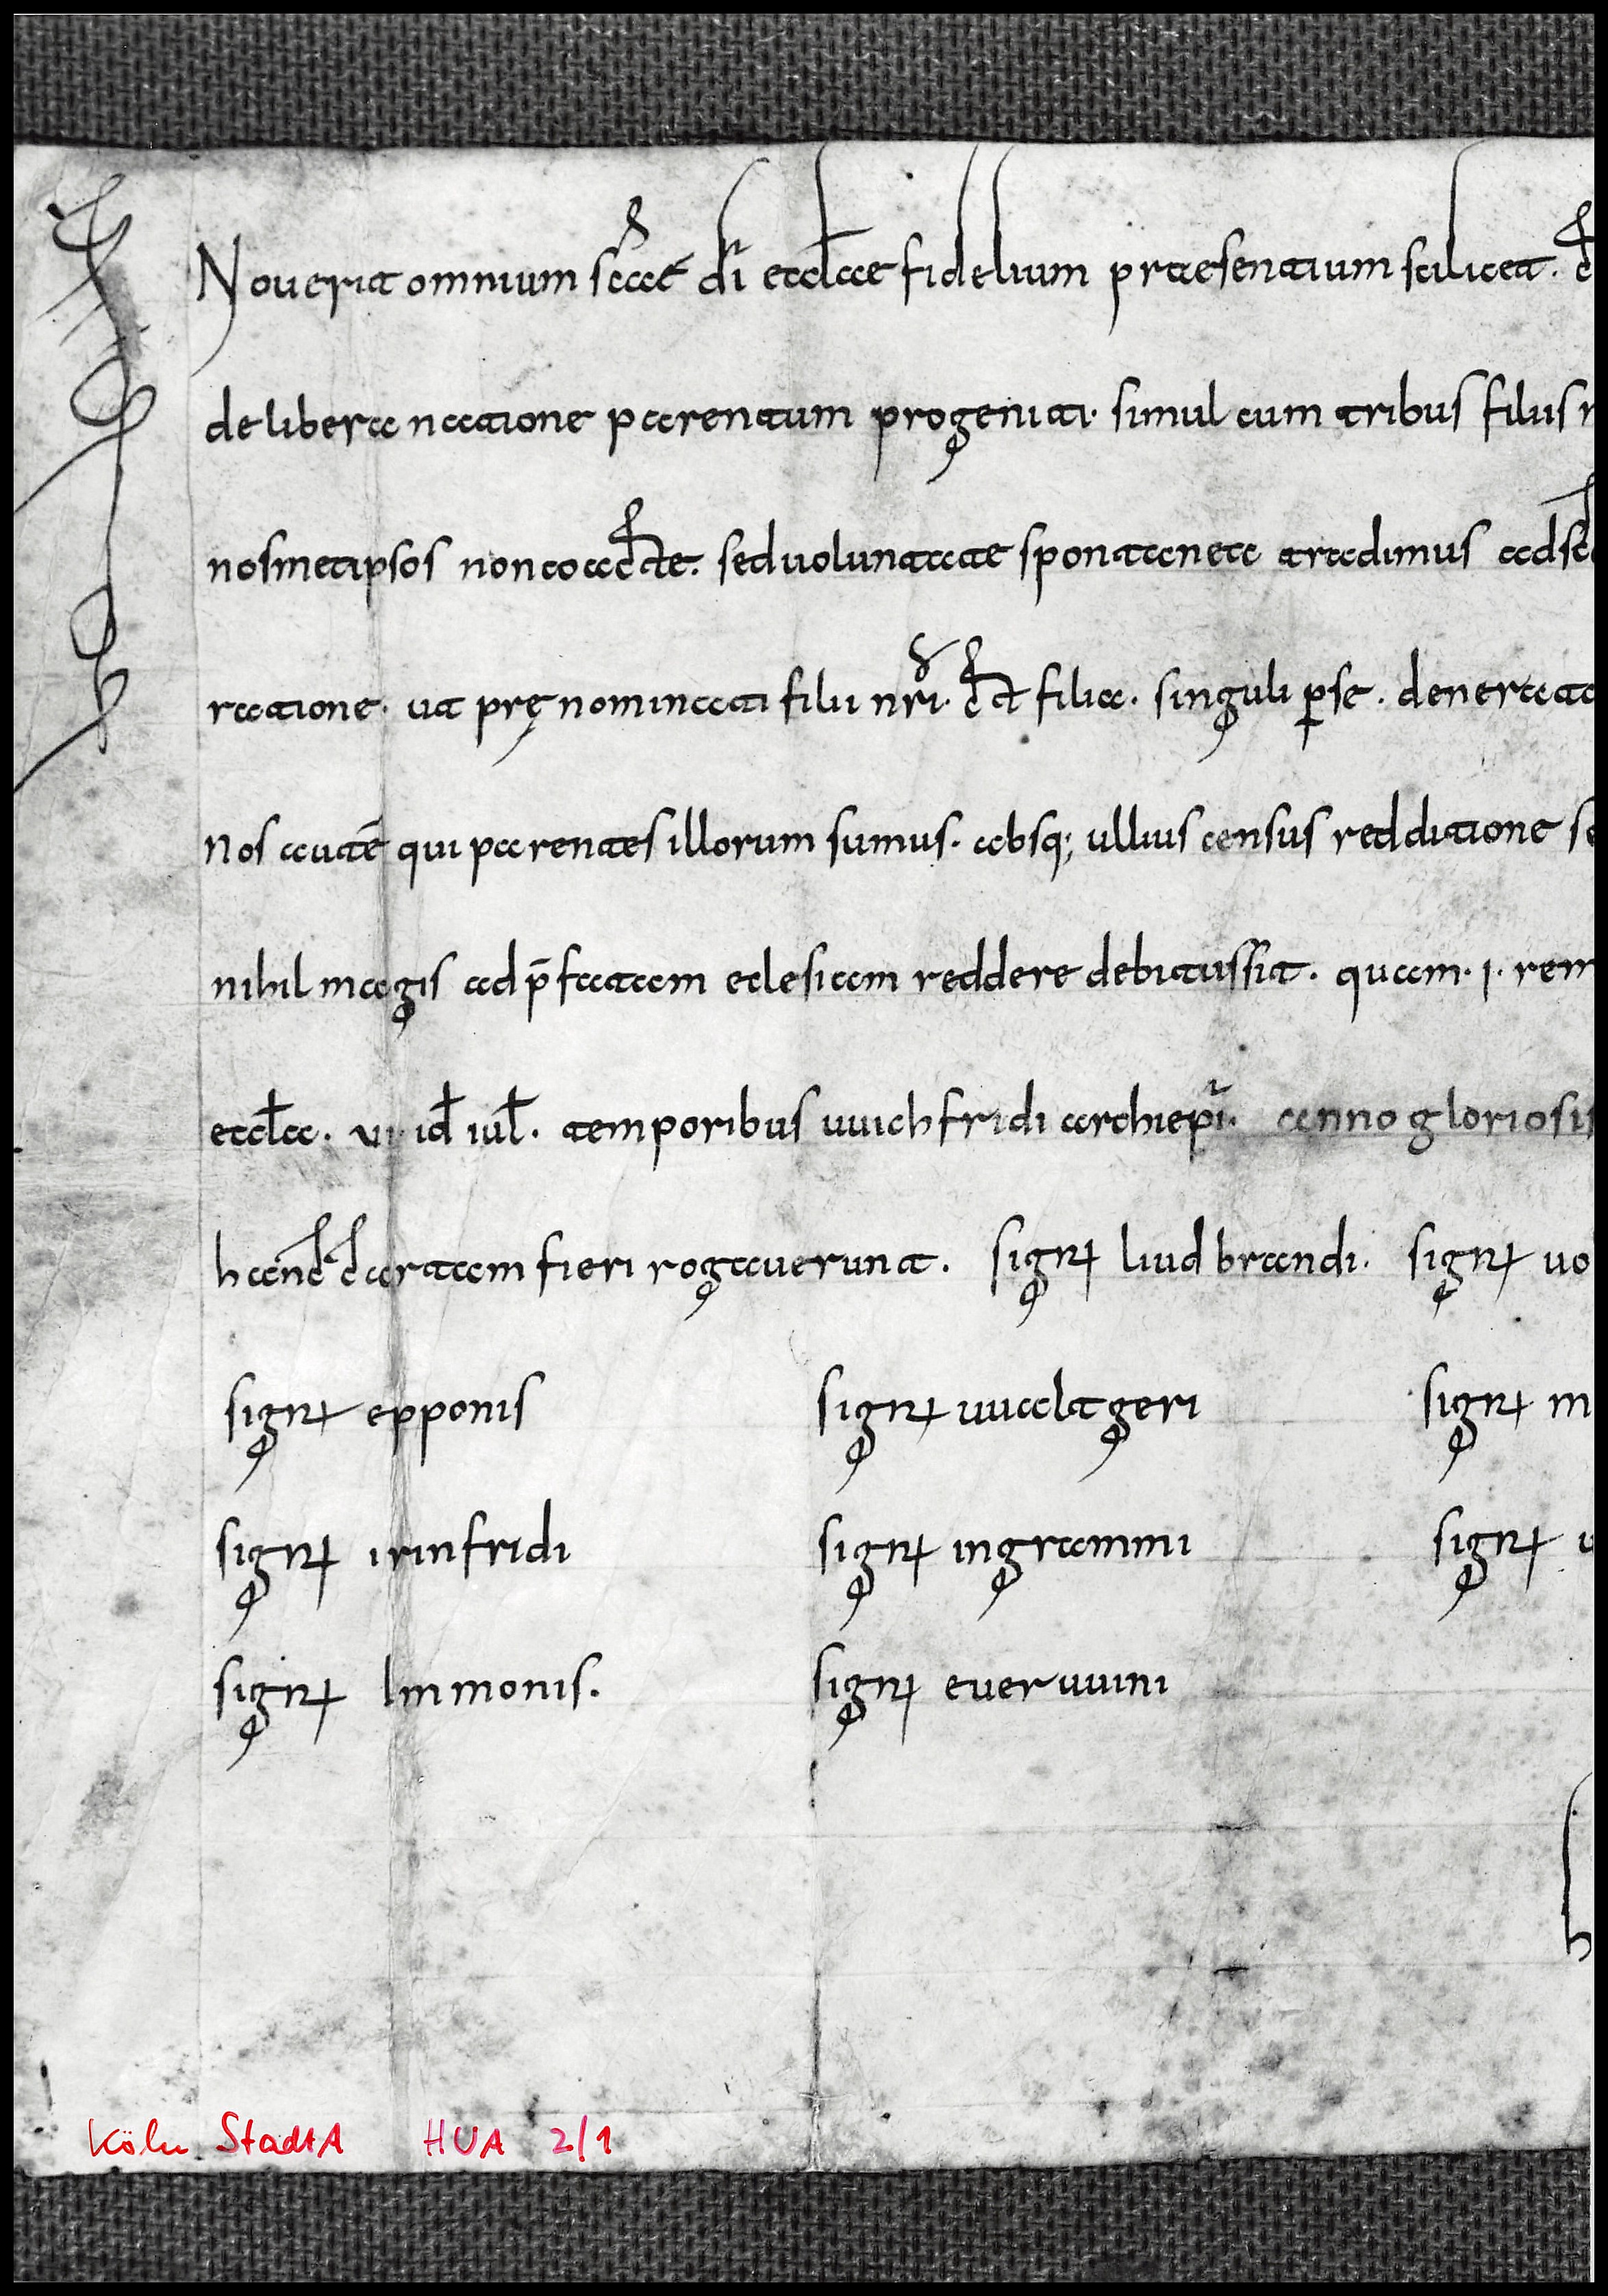 Noverit omnium scae di ecclae fidelium praesentium scilicet.
de libera natione parentum progeniti. simul cum tribus filiis
nosmetipsos non coacte. sed voluntate spontanea tradimus ad
ratione. ut pręnominati filii nri. et filia. singuli pse. denerat
Nos autē qui parentes illorum sumus. absq; ullius census redditione
nihil magis ad p̄fatam eclesiam reddere debitussit. quam. i. rem
eccla. vi. id iul. temporibus uuichfridi archiepi. anno gloriosis
hanc cartam fieri rogaverunt. sign liudbrandi. sign vo
sign epponis sign uualtgeri sign m
sign irinfridi sign ingrammi sign
sign Immonis. sign everuuini
Köln StadtA HUA 2/1